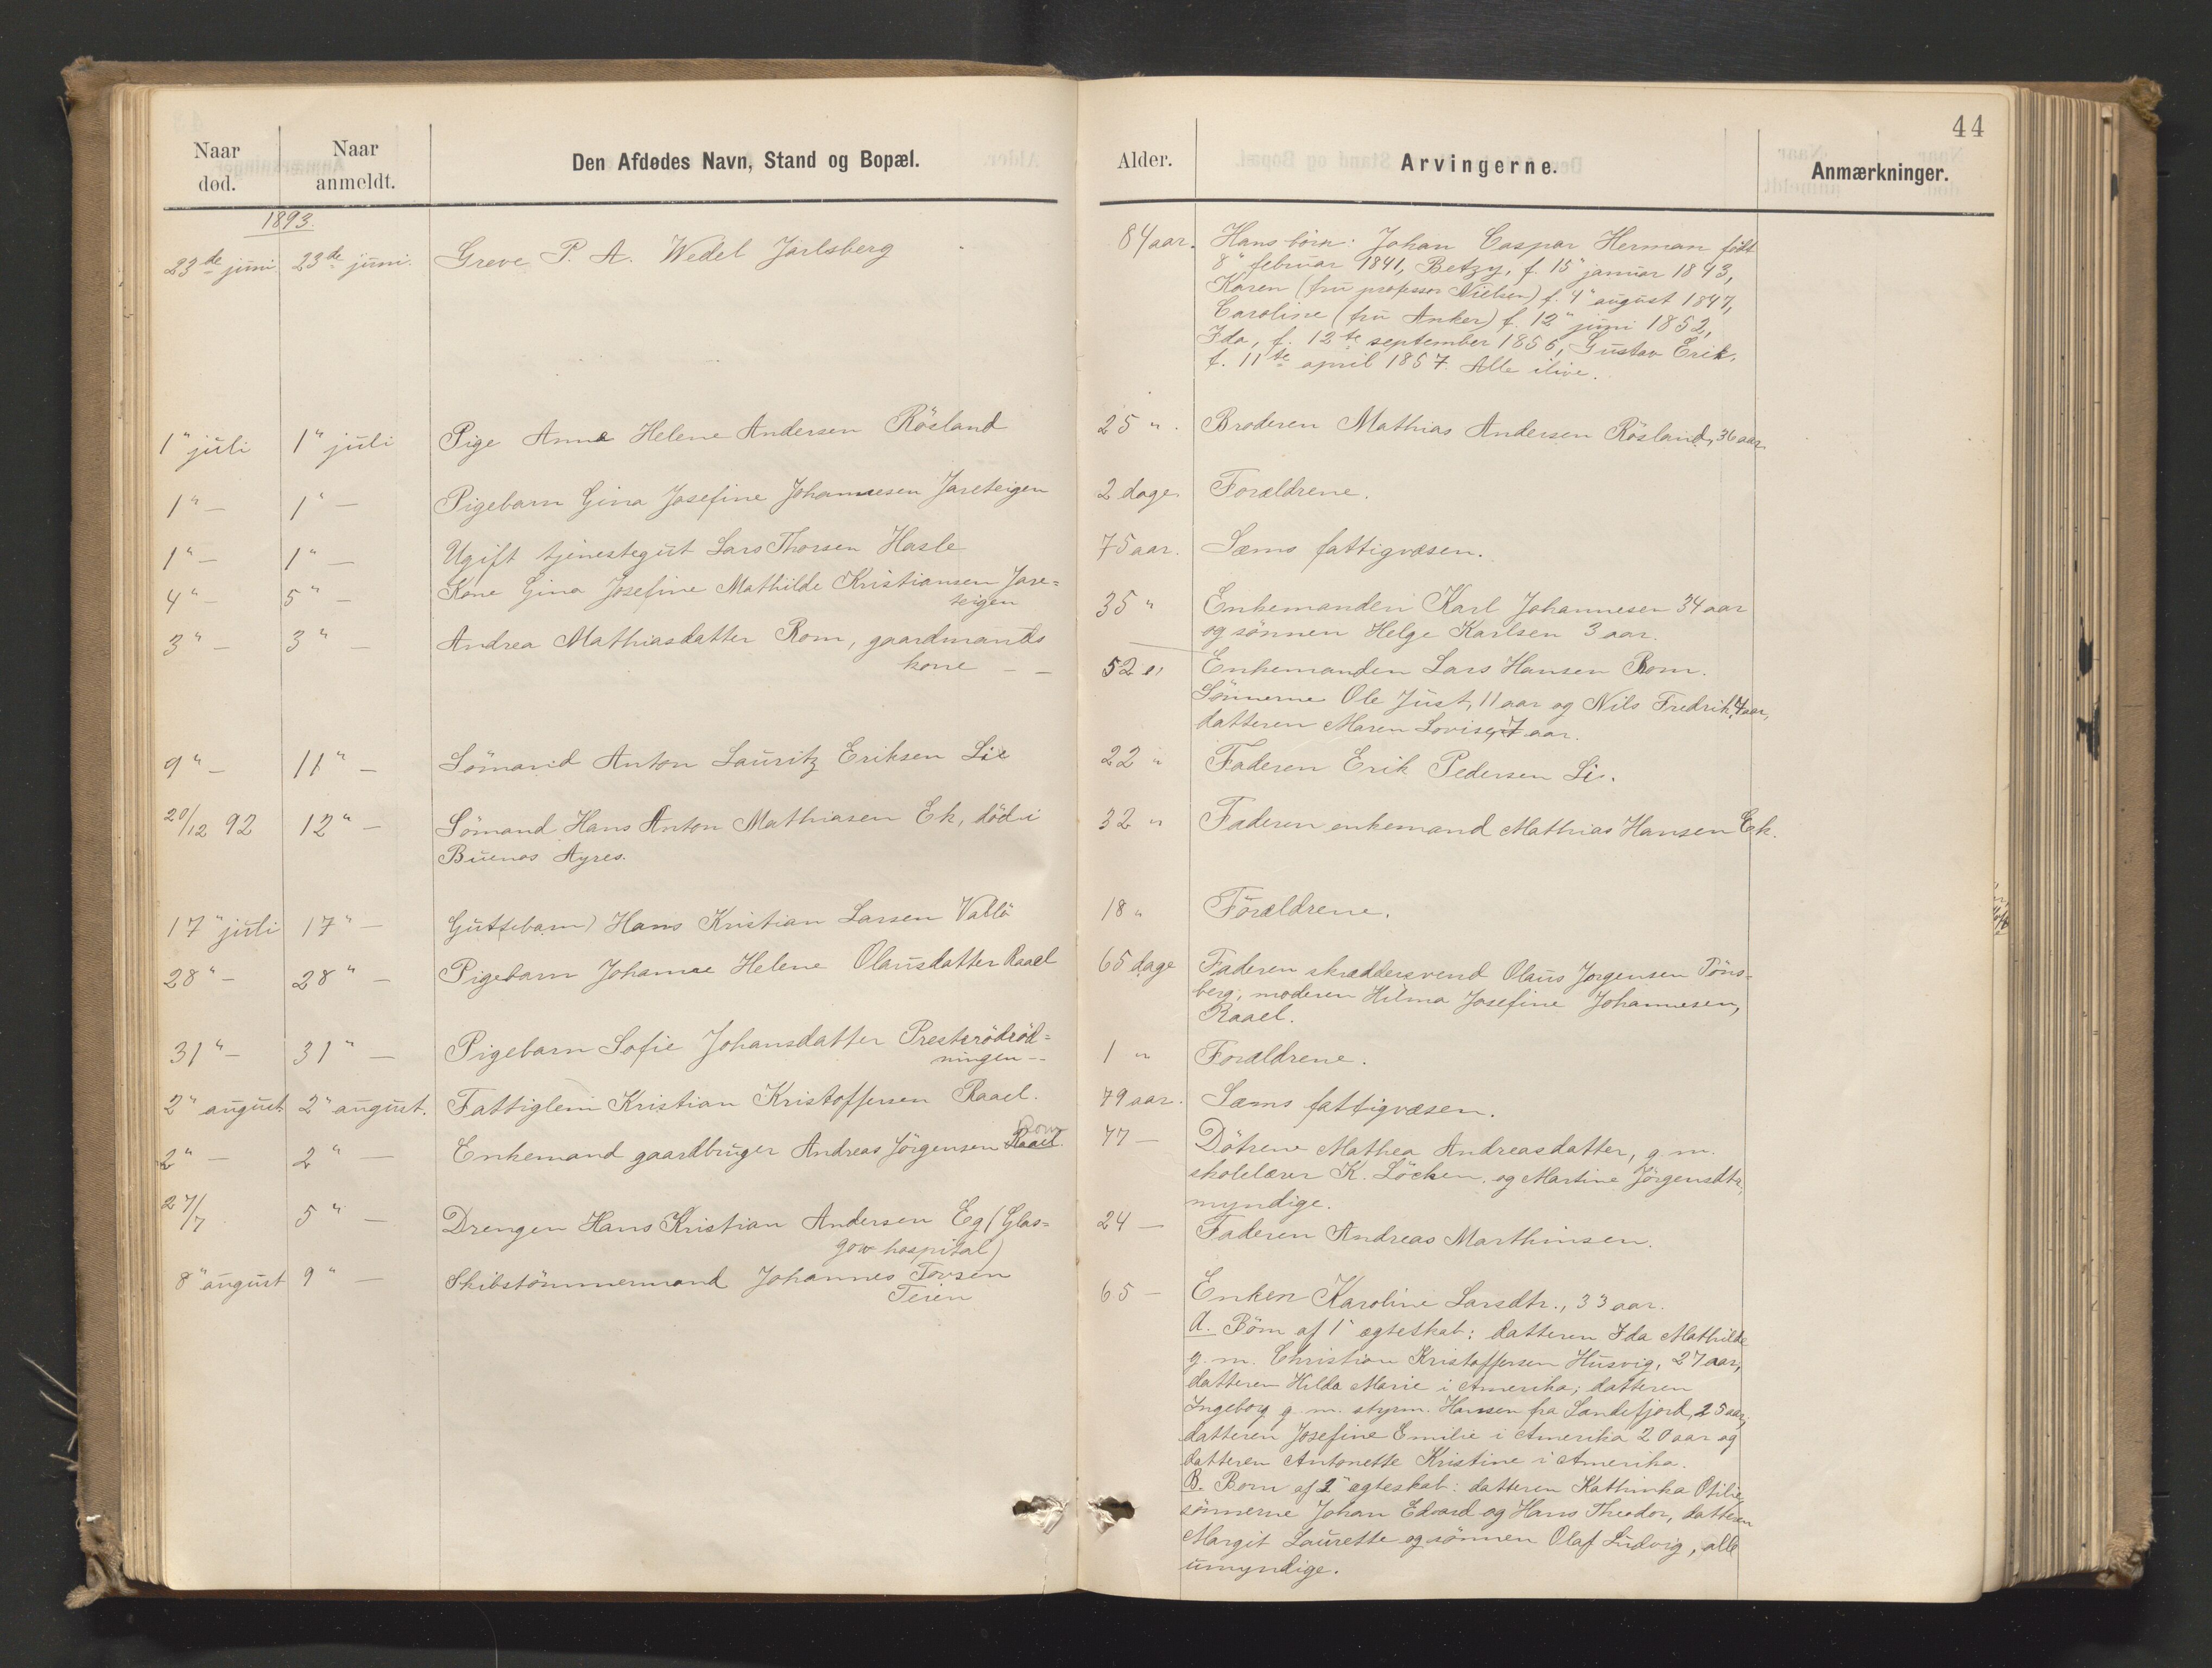 44
Naar død.
Naar anmeldt.
Den Afdødes Navn, Stand og Bopæl.
Alder.
Arvingerne.
Anmærkninger.
1893.
23de juni 23de juni. Greve P. A. Wedel Jarlsberg
84 aar. Hans börn: Johan Caspar Herman født
8" februar 1841, Betzy, f. 15" januar 1843,
Karen (fru professor Nielsen) f. 4" august 1847,
Caroline (fru Anker) f. 12" juni 1852,
Ida, f. 12te september 1856, Gustav Erik,
f. 11te april 1857. Alle ilive.
1" juli 1" juli Pige Anne Helene Andersen Rösland
25 " Broderen Mathias Andersen Rösland, 36 aar.
1" – 1" – Pigebarn Gina Josefine Johannesen Jareteigen
2 dage Forældrene.
1" – 1" – Ugift tjenestegut Lars Thorsen Hasle
75 aar. Sæms fattigvæsen.
4" – 5" – Kone Gina Josefine Mathilde Kristiansen Jare=
teigen
35 " Enkemanden Karl Johannesen 34 aar
og sönnen Helge Karlsen 3 aar.
3" – 3" – Andrea Mathiasdatter Rom, gaardmands
kone – –
52 " Enkemanden Lars Hansen Rom.
Sönnerne Ole Just, 11 aar og Nils Fredrik, 4 aar,
datteren Maren Lovise, 7 aar.
9" – 11" – Sömand Anton Lauritz Eriksen Lie
22 " Faderen Erik Pedersen Li.
20/12 92 12" – Sömand Hans Anton Mathiasen Ek, död i
Buenos Ayres.
32 " Faderen enkemand Mathias Hansen Ek.
17" juli 17" – Guttebarn Hans Kristian Larsen Vallö
18 " Forældrene.
28" – 28" – Pigebarn Johanne Helene Olausdatter Raael
65 dage Faderen skræddersvend Olaus Jorgensen Töns-
berg; moderen Hilma Josefine Johannesen,
Raael.
31" – 31" – Pigebarn Sofie Johansdatter Presterödröd=
ningen –
1 " Forældrene.
2" august 2" august. Fattiglem Kristian Kristoffersen Raael.
79 aar. Sæms fattigvæsen.
2" – 2" – Enkemand gaardbruger Andreas Jörgensen Raael Rom
77 – Dötrene Mathea Andreasdatter, g. m.
skolelærer K. Löcken, og Martine Jörgensdtr,
myndige.
27/7 5" – Drengen Hans Kristian Andersen Eg (Glas=
gow hospital)
24 – Faderen Andreas Marthinsen.
8" august 9" – Skibstömmermand Johannes Torsen
Teien
65 – Enken Karoline Larsdtr., 33 aar.
A. Börn af 1" ægteskab: datteren Ida Mathilde
g. m. Christian Kristoffersen Husvig, 27 aar,
datteren Hilda Marie i Amerika; datteren
Ingeborg g. m. styrm. Hansen fra Sandefjord, 25 aar,
datteren Josefine Emilie i Amerika 20 aar og
datteren Antonette Kristine i Amerika.
B. Born af 2" ægteskab: datteren Kathinka Otilie,
sönnerne Johan Edvard og Hans Theodor, datteren
Margit Laurette og sönnen Olaf Ludvig, alle
umyndige.